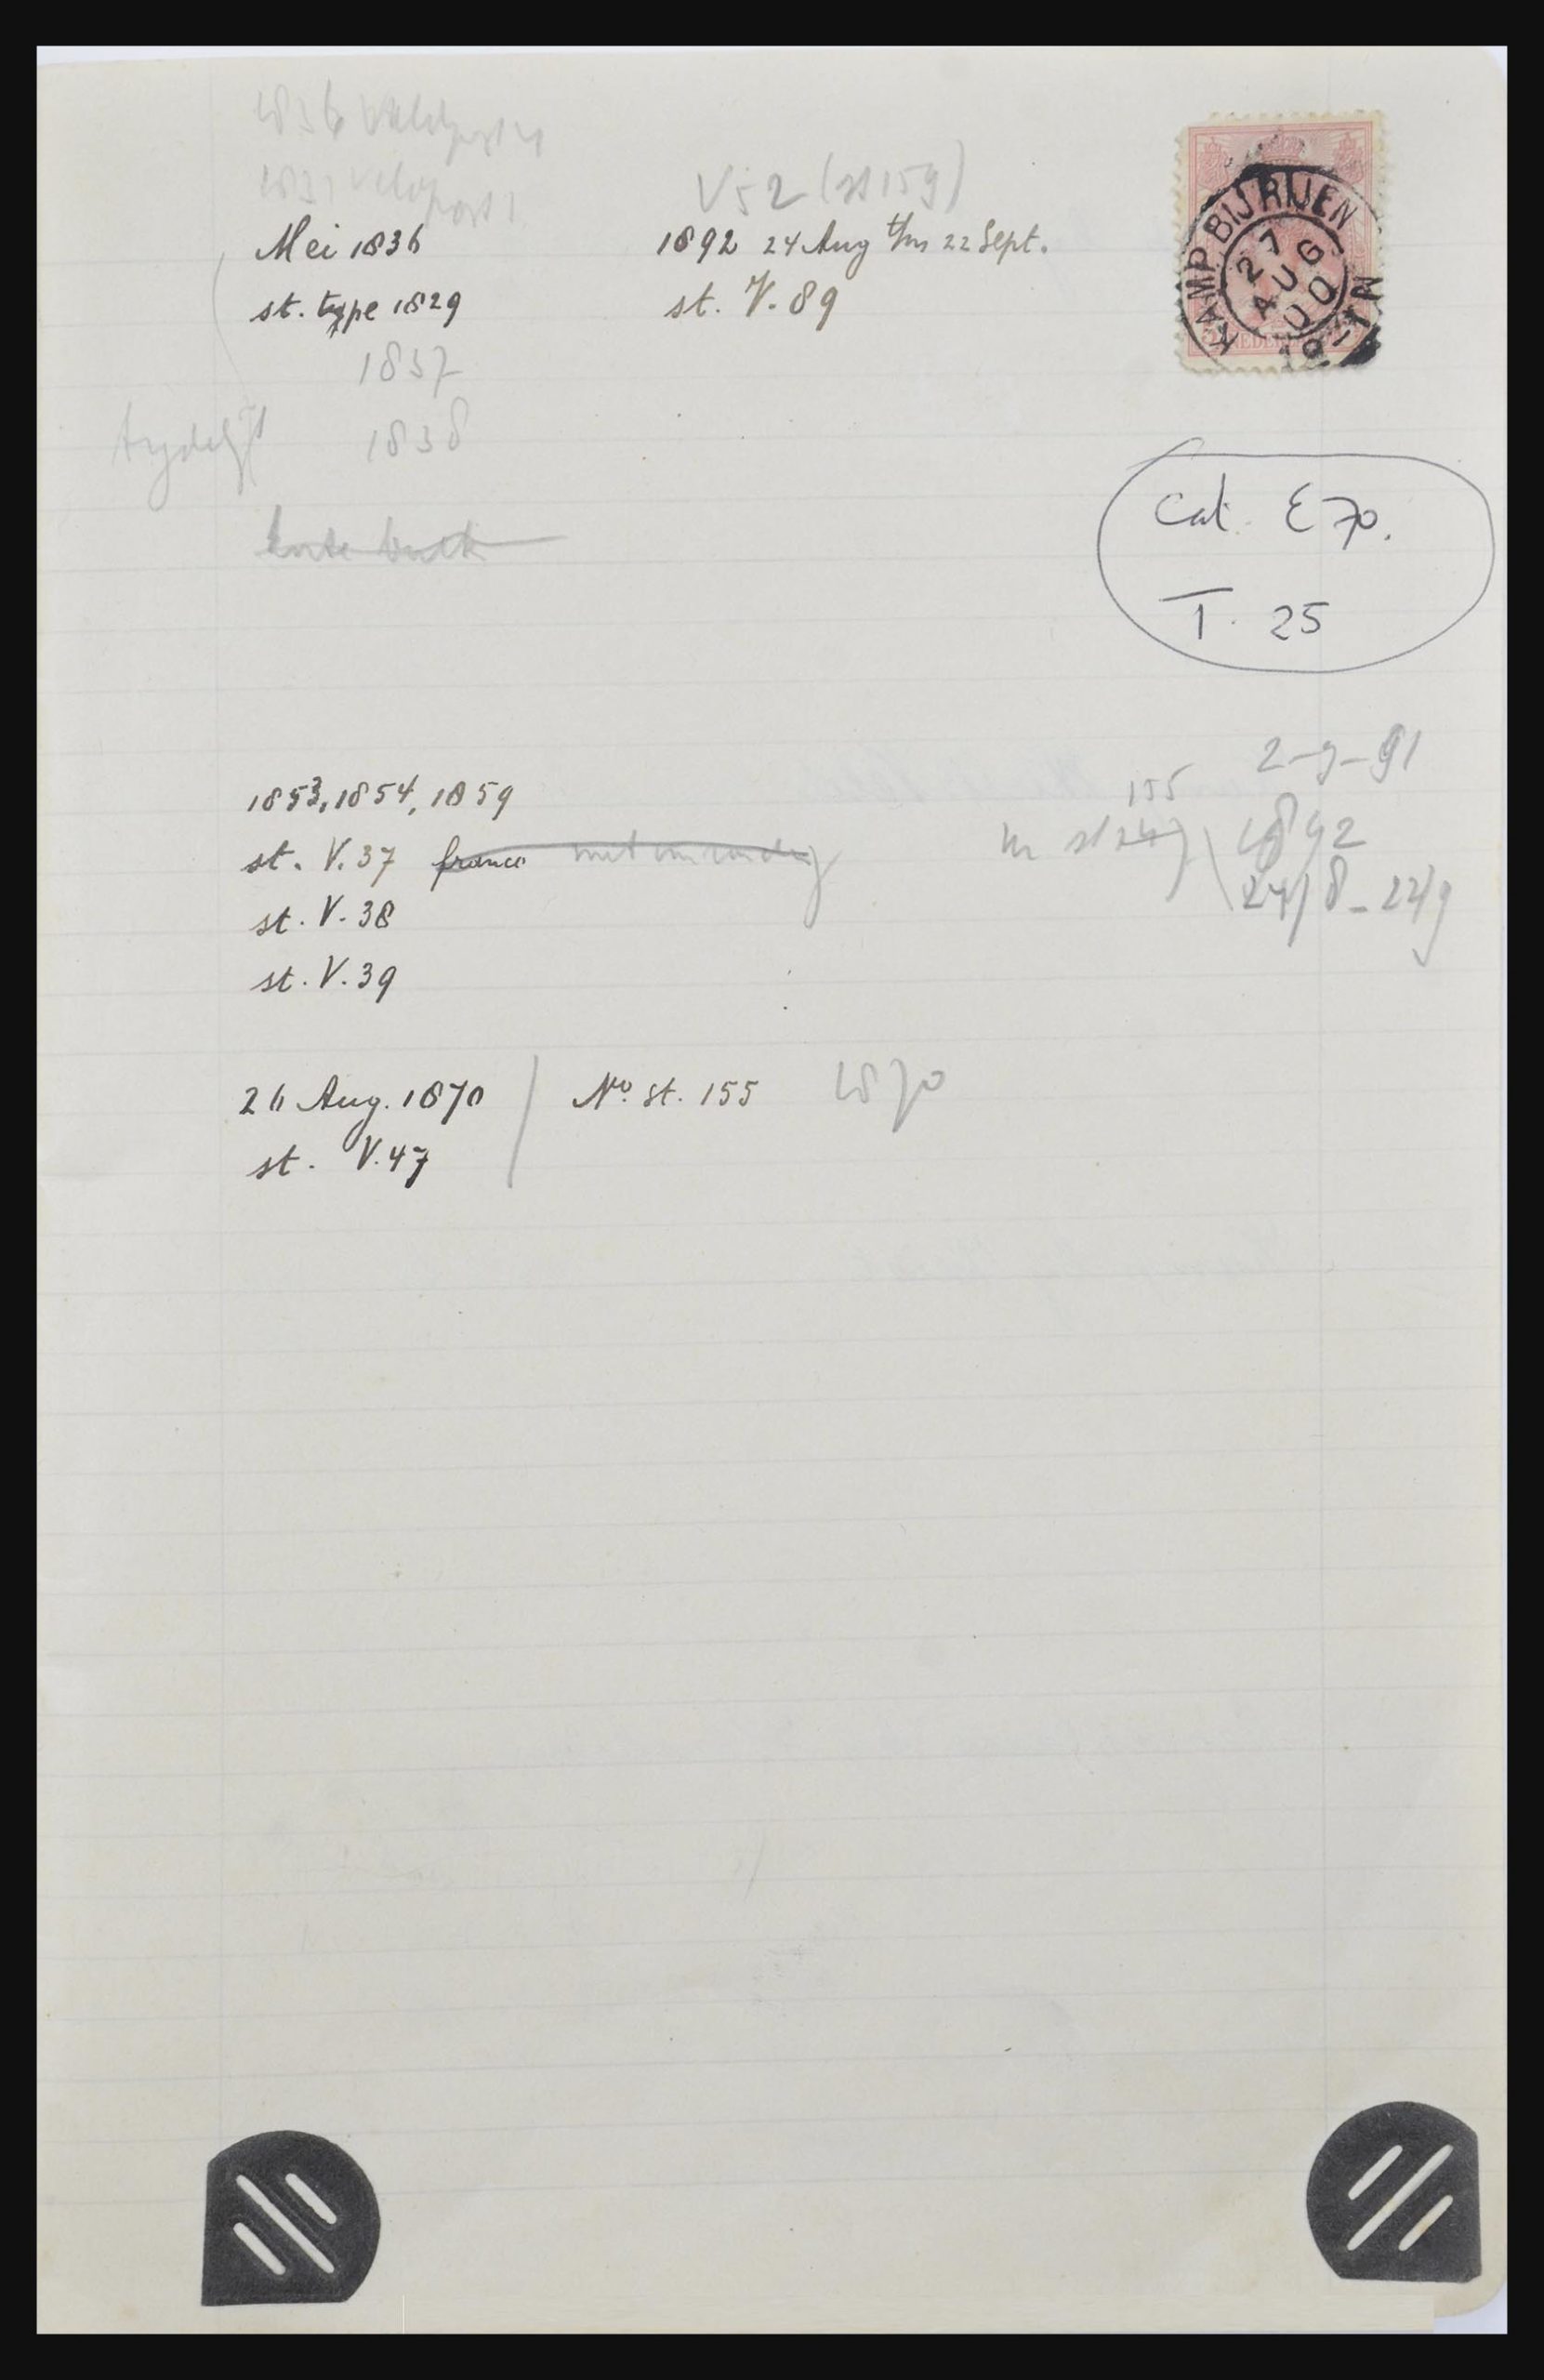 1836 Veldpost
1837 Veldpost
V52 (st 159)
Mei 1836
st. type 1829
1837
1838
1892 24 Aug t/m 22 Sept.
st. V. 89
KAMP BIJ RIJEN
27
AUG
00
NEDER
Cat. E 70.
T. 25
1853, 1854, 1859
st. V. 37 franco
st. V. 38
st. V. 39
155
2-9-91
1892
24/8 - 22/9
26 Aug. 1870
st. V. 47
No. st. 155
1870